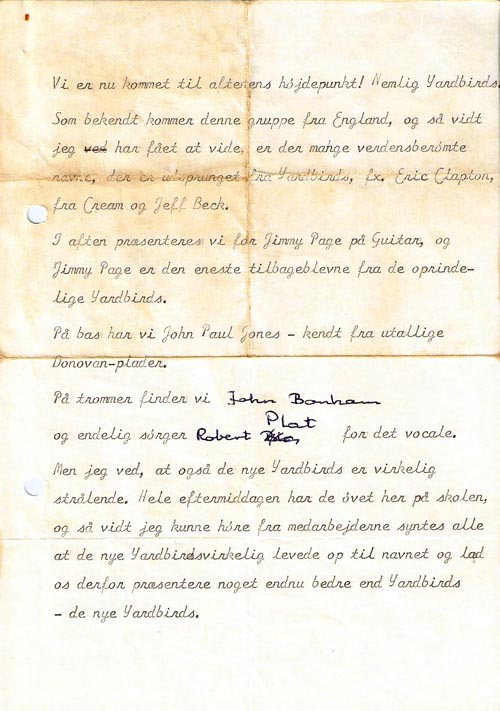 Vi er nu kommet til aftenens höjdepunkt! Nemlig Yardbirds.
Som bekendt kommer denne gruppe fra England, og så vidt
jeg ved har fået at vide, er der mange verdensberömte
navne, der er udsprunget fra Yardbirds, fx. Eric Clapton,
fra Cream og Jeff Beck.
I aften præsenteres vi for Jimmy Page på Guitar, og
Jimmy Page er den eneste tilbageblevne fra de oprinde-
lige Yardbirds.
På bas har vi John Paul Jones - kendt fra utallige
Donovan-plader.
På trommer finder vi John Bonham
Plat
og endelig sörger Robert for det vocale.
Men jeg ved, at også de nye Yardbirds er virkelig
strålende. Hele eftermiddagen har de övet her på skolen,
og så vidt jeg kunne höre fra medarbejderne syntes alle
at de nye Yardbirdsvirkelig levede op til navnet og lad
os derfor præsentere noget endnu bedre end Yardbirds
- de nye Yardbirds.